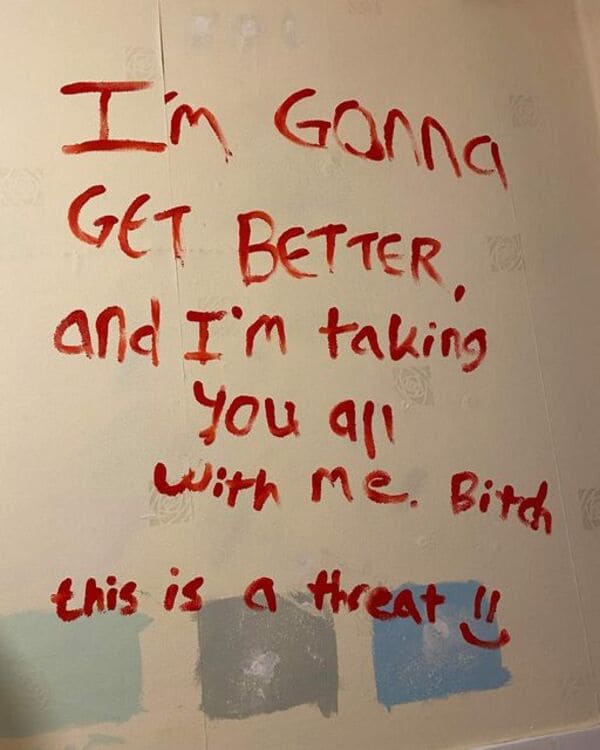 I'm Gonna
GET BETTER,
and I'm taking
you all
with me. Bitch
this is a threat !!